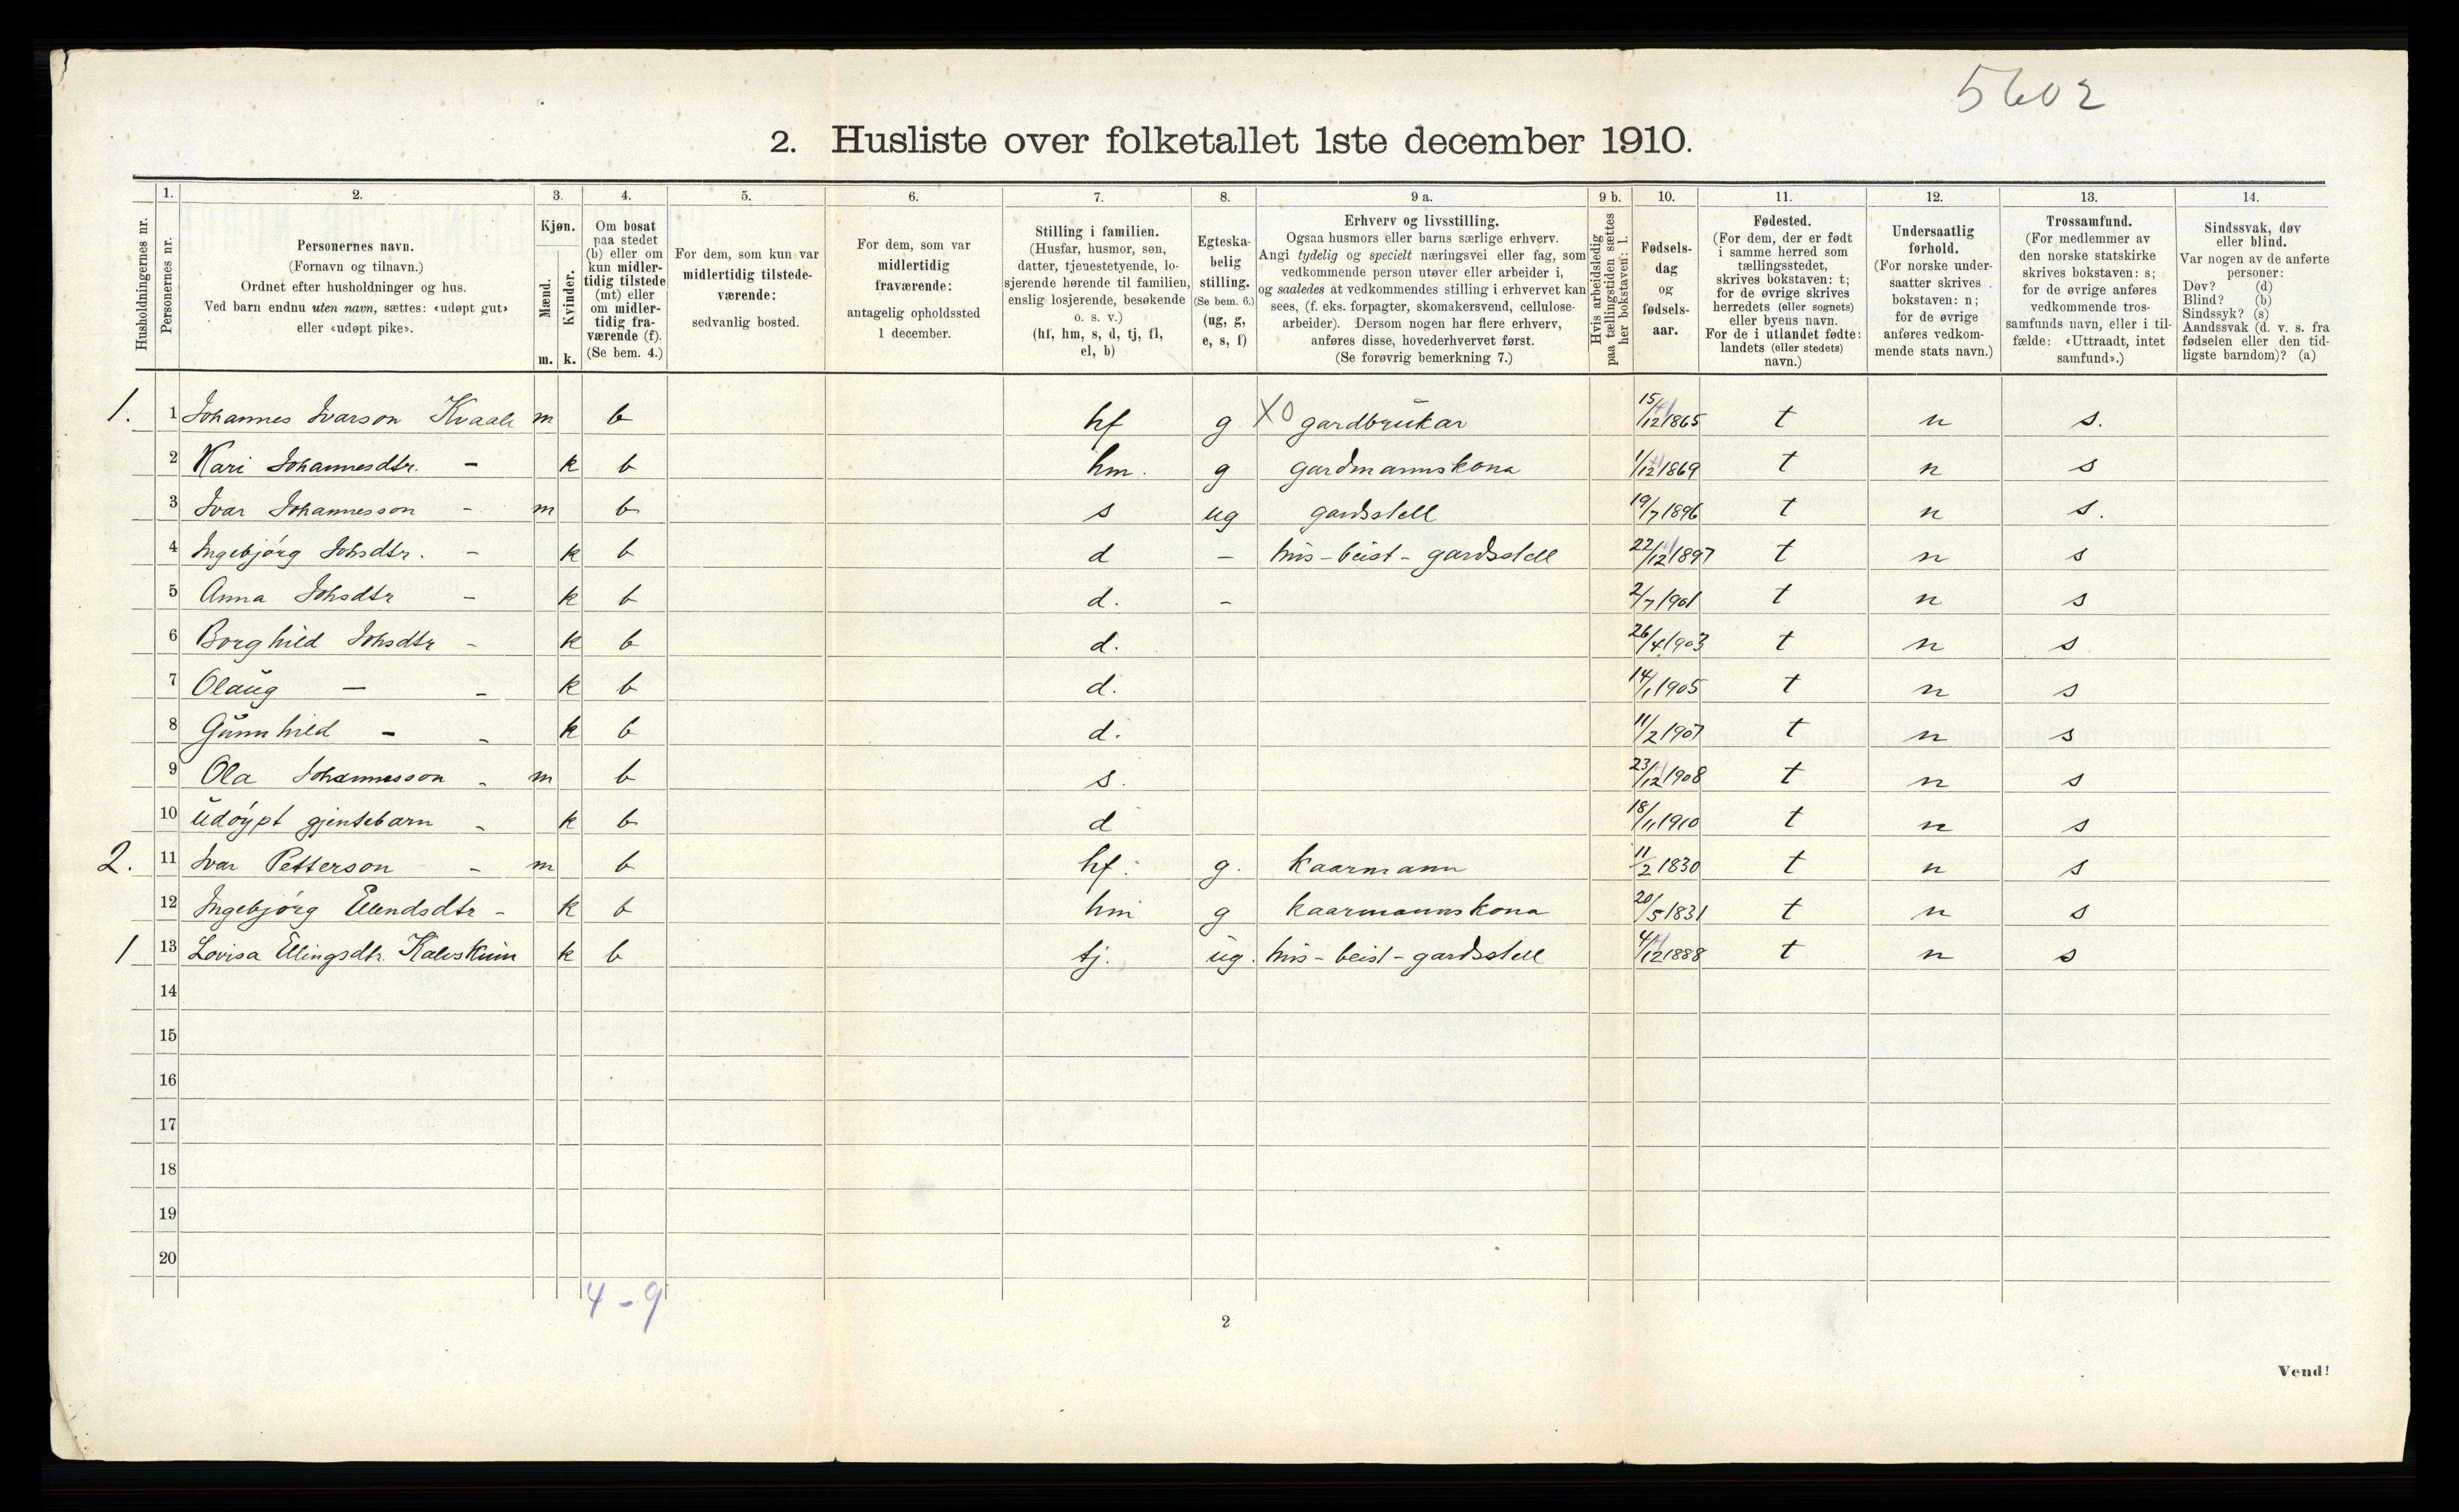 5602
2. Husliste over folketallet 1ste december 1910.
Husholdningernes nr.
1.
Personernes nr.
2.
Personernes navn.
(Fornavn og tilnavn.)
Ordnet efter husholdninger og hus.
Ved barn endnu uten navn, sættes: «udøpt gut»
eller «udøpt pike».
3.
Kjøn.
Mænd.
Kvinder.
m. k.
4.
Om bosat
paa stedet
(b) eller om
kun midler-
tidig tilstede
(mt) eller
om midler-
tidig fra-
værende (f).
(Se bem. 4.)
5.
For dem, som kun var
midlertidig tilstede-
værende:
sedvanlig bosted.
6.
For dem, som var
midlertidig
fraværende:
antagelig opholdssted
1 december.
7.
Stilling i familien.
(Husfar, husmor, søn,
datter, tjenestetyende, lo-
sjerende hørende til familien,
enslig losjerende, besøkende
o. s. v.)
(hf, hm, s, d, tj, fl,
el, b)
8.
Egteska-
belig
stilling.
(Se bem. 6.)
(ug, g,
e, s, f)
9 a.
Erhverv og livsstilling.
Ogsaa husmors eller barns særlige erhverv.
Angi tydelig og specielt næringsvei eller fag, som
vedkommende person utøver eller arbeider i,
og saaledes at vedkommendes stilling i erhvervet kan
sees, (f. eks. forpagter, skomakersvend, cellulose-
arbeider). Dersom nogen har flere erhverv,
anføres disse, hovederhvervet først.
(Se forøvrig bemerkning 7.)
9 b.
Hvis arbeidsledig
paa tællingstiden sættes
her bokstaven: l.
10.
Fødsels-
dag
og
fødsels-
aar.
11.
Fødested.
(For dem, der er født
i samme herred som
tællingsstedet,
skrives bokstaven: t;
for de øvrige skrives
herredets (eller sognets)
eller byens navn.
For de i utlandet fødte:
landets (eller stedets)
navn.)
12.
Undersaatlig
forhold.
(For norske under-
saatter skrives
bokstaven: n;
for de øvrige
anføres vedkom-
mende stats navn.)
13.
Trossamfund.
(For medlemmer av
den norske statskirke
skrives bokstaven: s;
for de øvrige anføres
vedkommende tros-
samfunds navn, eller i til-
fælde: «Uttraadt, intet
samfund».)
14.
Sindssvak, døv
eller blind.
Var nogen av de anførte
personer:
Døv? (d)
Blind? (b)
Sindssyk? (s)
Aandssvak (d. v. s. fra
fødselen eller den tid-
ligste barndom)? (a)
1. 1 Johannes Ivarson Kvaale m b hf g X0 gardbrukar 15/12 1865 t n s.
2 Kari Johannesdtr. - k b hm. g gardmannskona 1/12 1869 t n s
3 Ivar Johannesson - m b s ug gardsstell 19/7 1896 t n s.
4 Ingebjørg Johsdtr. - k b d - hus-beist-gardsstell 22/12 1897 t n s
5 Anna Johsdtr - k b d. - 2/7 1901 t n s
6 Borghild Johsdtr - k b d. 26/4 1903 t n s
7 Olaug - - k b d. 14/1 1905 t n s
8 Gunnhild - - k b d. 11/2 1907 t n s
9 Ola Johannesson - m b s. 23/12 1908 t n s
10 Udøypt gjentebarn - k b d 18/11 1910 t n s
2. 11 Ivar Petterson - m b hf. g. kaarmann 11/2 1830 t n s
12 Ingebjørg Elendsdtr - k b hm g kaarmannskona 20/5 1831 t n s
1 13 Lovisa Ellingsdtr. Kalvskinn k b tj. ug. hus-beist-gardsstell 4/12 1888 t n s
14
15
16
17
18
19
20
4-9
2
Vend!